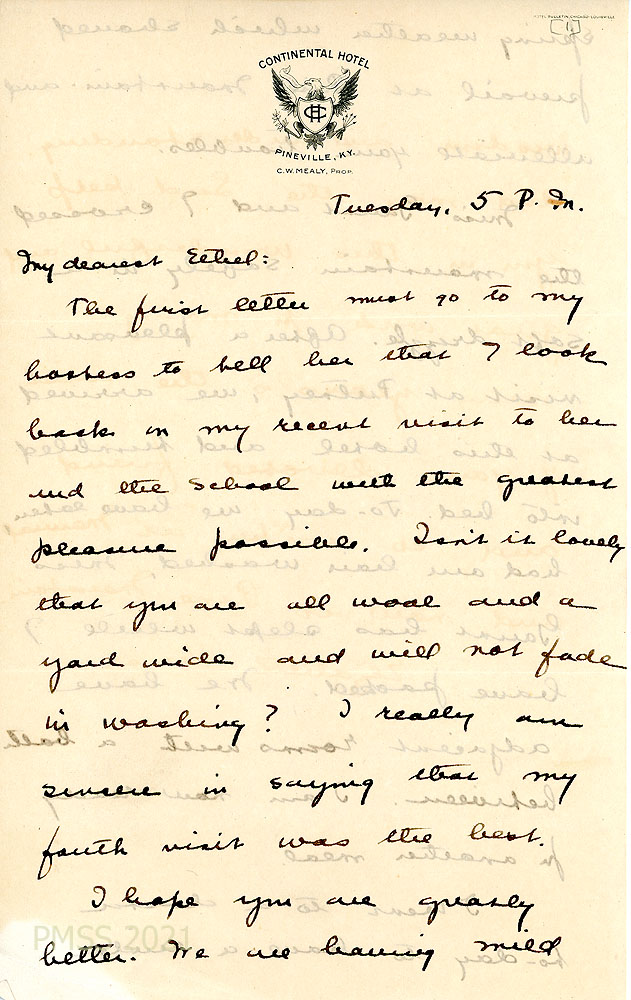 HOTEL BULLETIN, CHICAGO-LOUISVILLE
1
CONTINENTAL HOTEL
CH
PINEVILLE, KY.
C.W. MEALY, PROP.
Tuesday, 5 P.M.
My dearest Ethel:
The first letter must go to my
hostess to tell her that I look
back on my recent visit to her
and the School with the greatest
pleasure possible. Isn't it lovely
that you are all wool and a
yard wide and will not fade
in washing? I really am
sincere in saying that my
fourth visit was the best.
I hope you are greatly
better. We are having mild
PMSS 2021